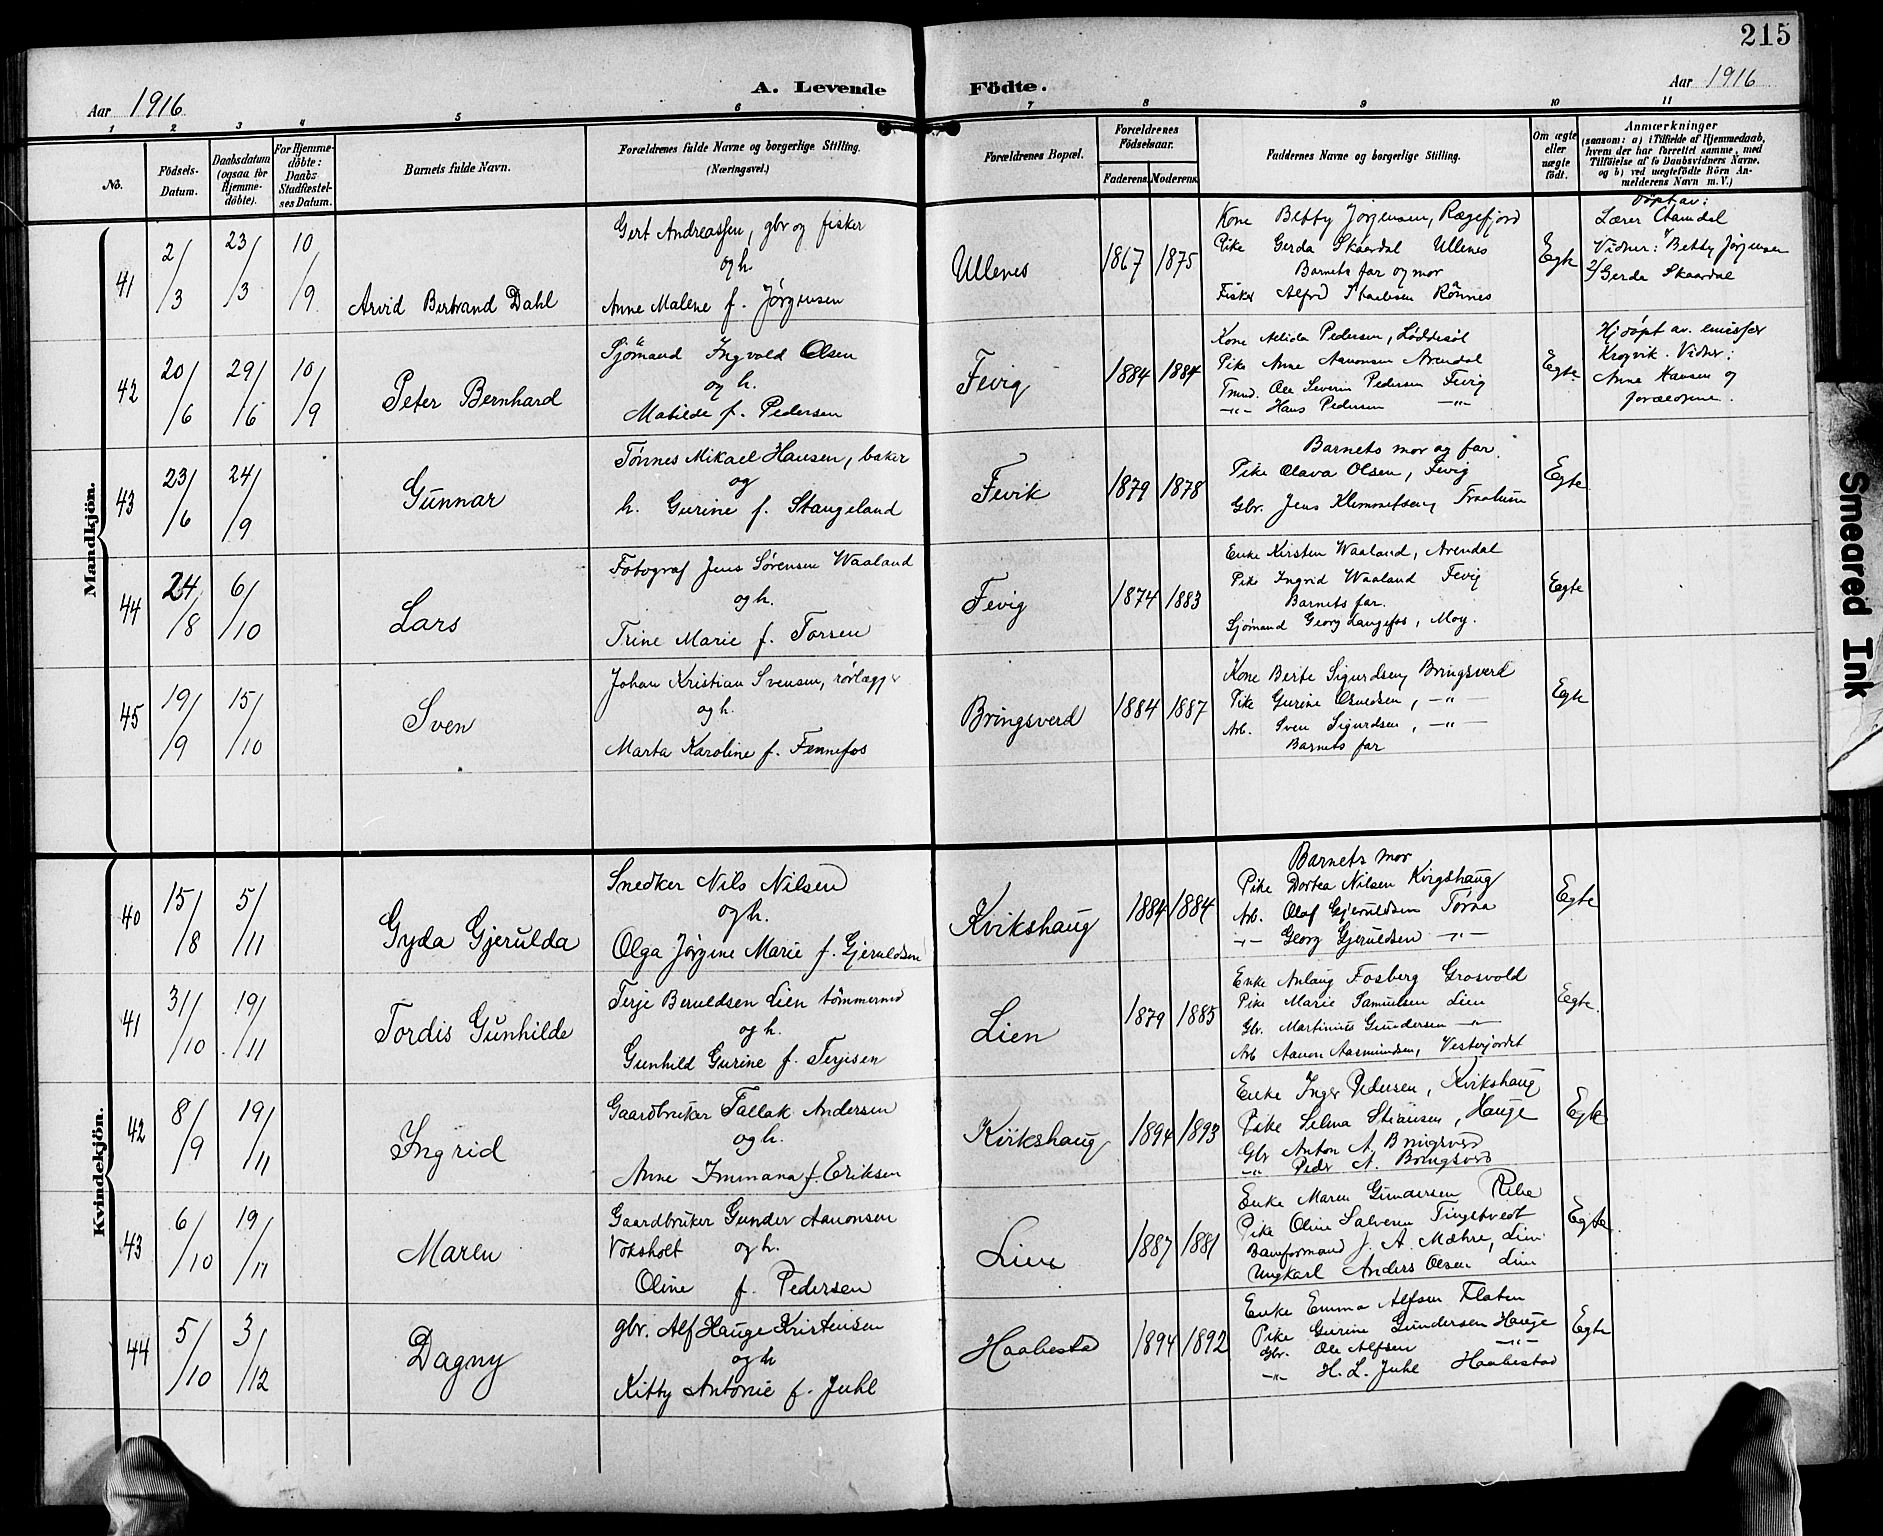 215
Aar 1916 A. Levende Födte. Aar 1916
1 2 3 4 5 6 7 8 9 10 11
No.
Födsels-Datum.
Daabsdatum (ogsaa for Hjemme-döbte).
For Hjemme-döbte: Daabs Stadfæstel-ses Datum.
Barnets fulde Navn.
Forældrenes fulde Navne og borgerlige Stilling.
(Næringsvei.)
Forældrenes Bopæl.
Forældrenes Födselsaar.
Faderens. Moderens.
Faddernes Navne og borgerlige Stilling.
Om ægte eller uægte födt.
Anmærkninger
(saasom: a) i Tilfælde af Hjemmedaab,
hvem der har forrettet samme, med
Tilföielse af to Daabsvidners Navne,
og b) ved uægtefödte Börn An-
melderens Navn m. V.)
Mandkjön.
41 2/3 23/3 10/9 Arvid Bertrand Dahl
Gert Andreassen, gbr og fisker
og h.
Anne Malene f. Jørgensen
Ullenes 1867 1875
Kone Betty Jørgensen, Rægefjord
Pike Gerda Skaardal Ullenes
Barnets far og mor
Fisker Alfred Rønnes
Egte
Døpt av:
Lærer
Vidner: Betty Jørgensen
2/ Gerda Skaardal
42 20/6 29/6 10/9 Peter Bernhard
Sjømand Ingvald Olsen
og h.
Matilde f. Pedersen
Fevig 1884 1884
Kone Alida Pedersen, Løddesøl
Pike Anne Aanonsen Arendal
Tmnd. Ole Severin Pedersen Fevig
-"- Hans Pedersen -"-
Egte.
Hj døpt av emissær
Krogvik. Vidner:
Anne Hansen og
forældrene.
43 23/6 24/9 Gunnar
Tønnes Mikael Hansen, baker
og
h. Gurine f. Stangeland
Fevik 1879 1878
Barnets mor og far.
Pike Olava Olsen, Fevig
Gbr. Jens Klemmetsen,
Egte
44 24/8 6/10 Lars
Fotograf Jens Sørensen Waaland
og h.
Trine Marie f. Torsen
Fevig 1874 1883
Enke Kirsten Waaland, Arendal
Pike Ingrid Waaland Fevig
Barnets far.
Sjømand Georg Langefos, Moy.
Egte
45 19/9 15/10 Sven
Johan Kristian Svensen, rørlægger
og h.
Marta Karoline f. Fennefos
Bringsverd 1884 1887
Kone Berte Sigurdsen, Bringsverd
Pike Gurine Osuldsen, -"-
Arb. Sven Sigurdsen, -"-
Barnets far
Egte
Kvindekjön.
40 15/8 5/11 Gyda Gjerulda
Snedker Nils Nilsen
og h.
Olga Jørgine Marie f. Gjeruldsen
Kvikshaug 1884 1884
Barnets mor
Pike Dortea Nilsen
Arb. Olaf Gjeruldsen Toraa
-"- Georg Gjeruldsen -"-
Egte
41 31/10 19/11 Tordis Gunhilde
Terje Beruldsen Lien tømmermd
og h.
Gunhild Gurine f. Terjesen
Lien 1879 1885
Enke Anlaug Fosberg Grosvold
Pike Marie Samuelsen Lien
Gbr. Martinius Gundersen -"-
Arb Aanon Aasmundsen, Vesterjordet
Egte.
42 8/9 19/11 Ingrid
Gaardbruker Tallak Andersen
og h.
Anne Immana f. Eriksen
Kvikshaug 1894 1893
Enke Inger Pedersen, Kvikshaug
Pike Selma Stiansen, Hauge
Gbr Anton A. Bringsverd
-"- Peder A. Bringsverd
Egte
43 6/10 19/11 Maren
Gaardbruker Gunder Aanonsen
Voksholt og h.
Oline f. Pedersen
Lien 1887 1881
Enke Maren Gundersen
Pike Oline Salvesen Tingstveit
Baneformand J. A. Mæhre, Lien
Ungkarl Anders Olsen Lien
Egte
44 5/10 3/12 Dagny
gbr. Alf Hauge Kristensen
og h
Kitty Antonie f. Juhl
Haabestad 1894 1892
Enke Emma Alfsen Flaten
Pike Gurine Gundersen Hauge
Gbr. Ole Alfsen -"-
-"- H. L. Juhl Haabestad
Egte
Smeared Ink